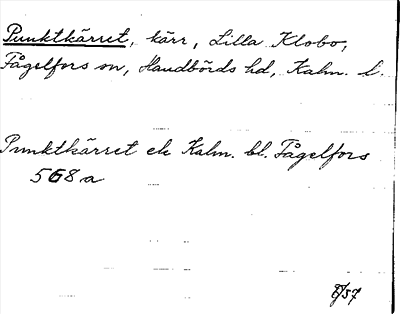 Punktkärret, kärr, Lilla Klobo,
Fågelfors sn, Handbörds hd, Kalm. l.
Punktkärret ek Kalm. bl. Fågelfors
568 a
/57